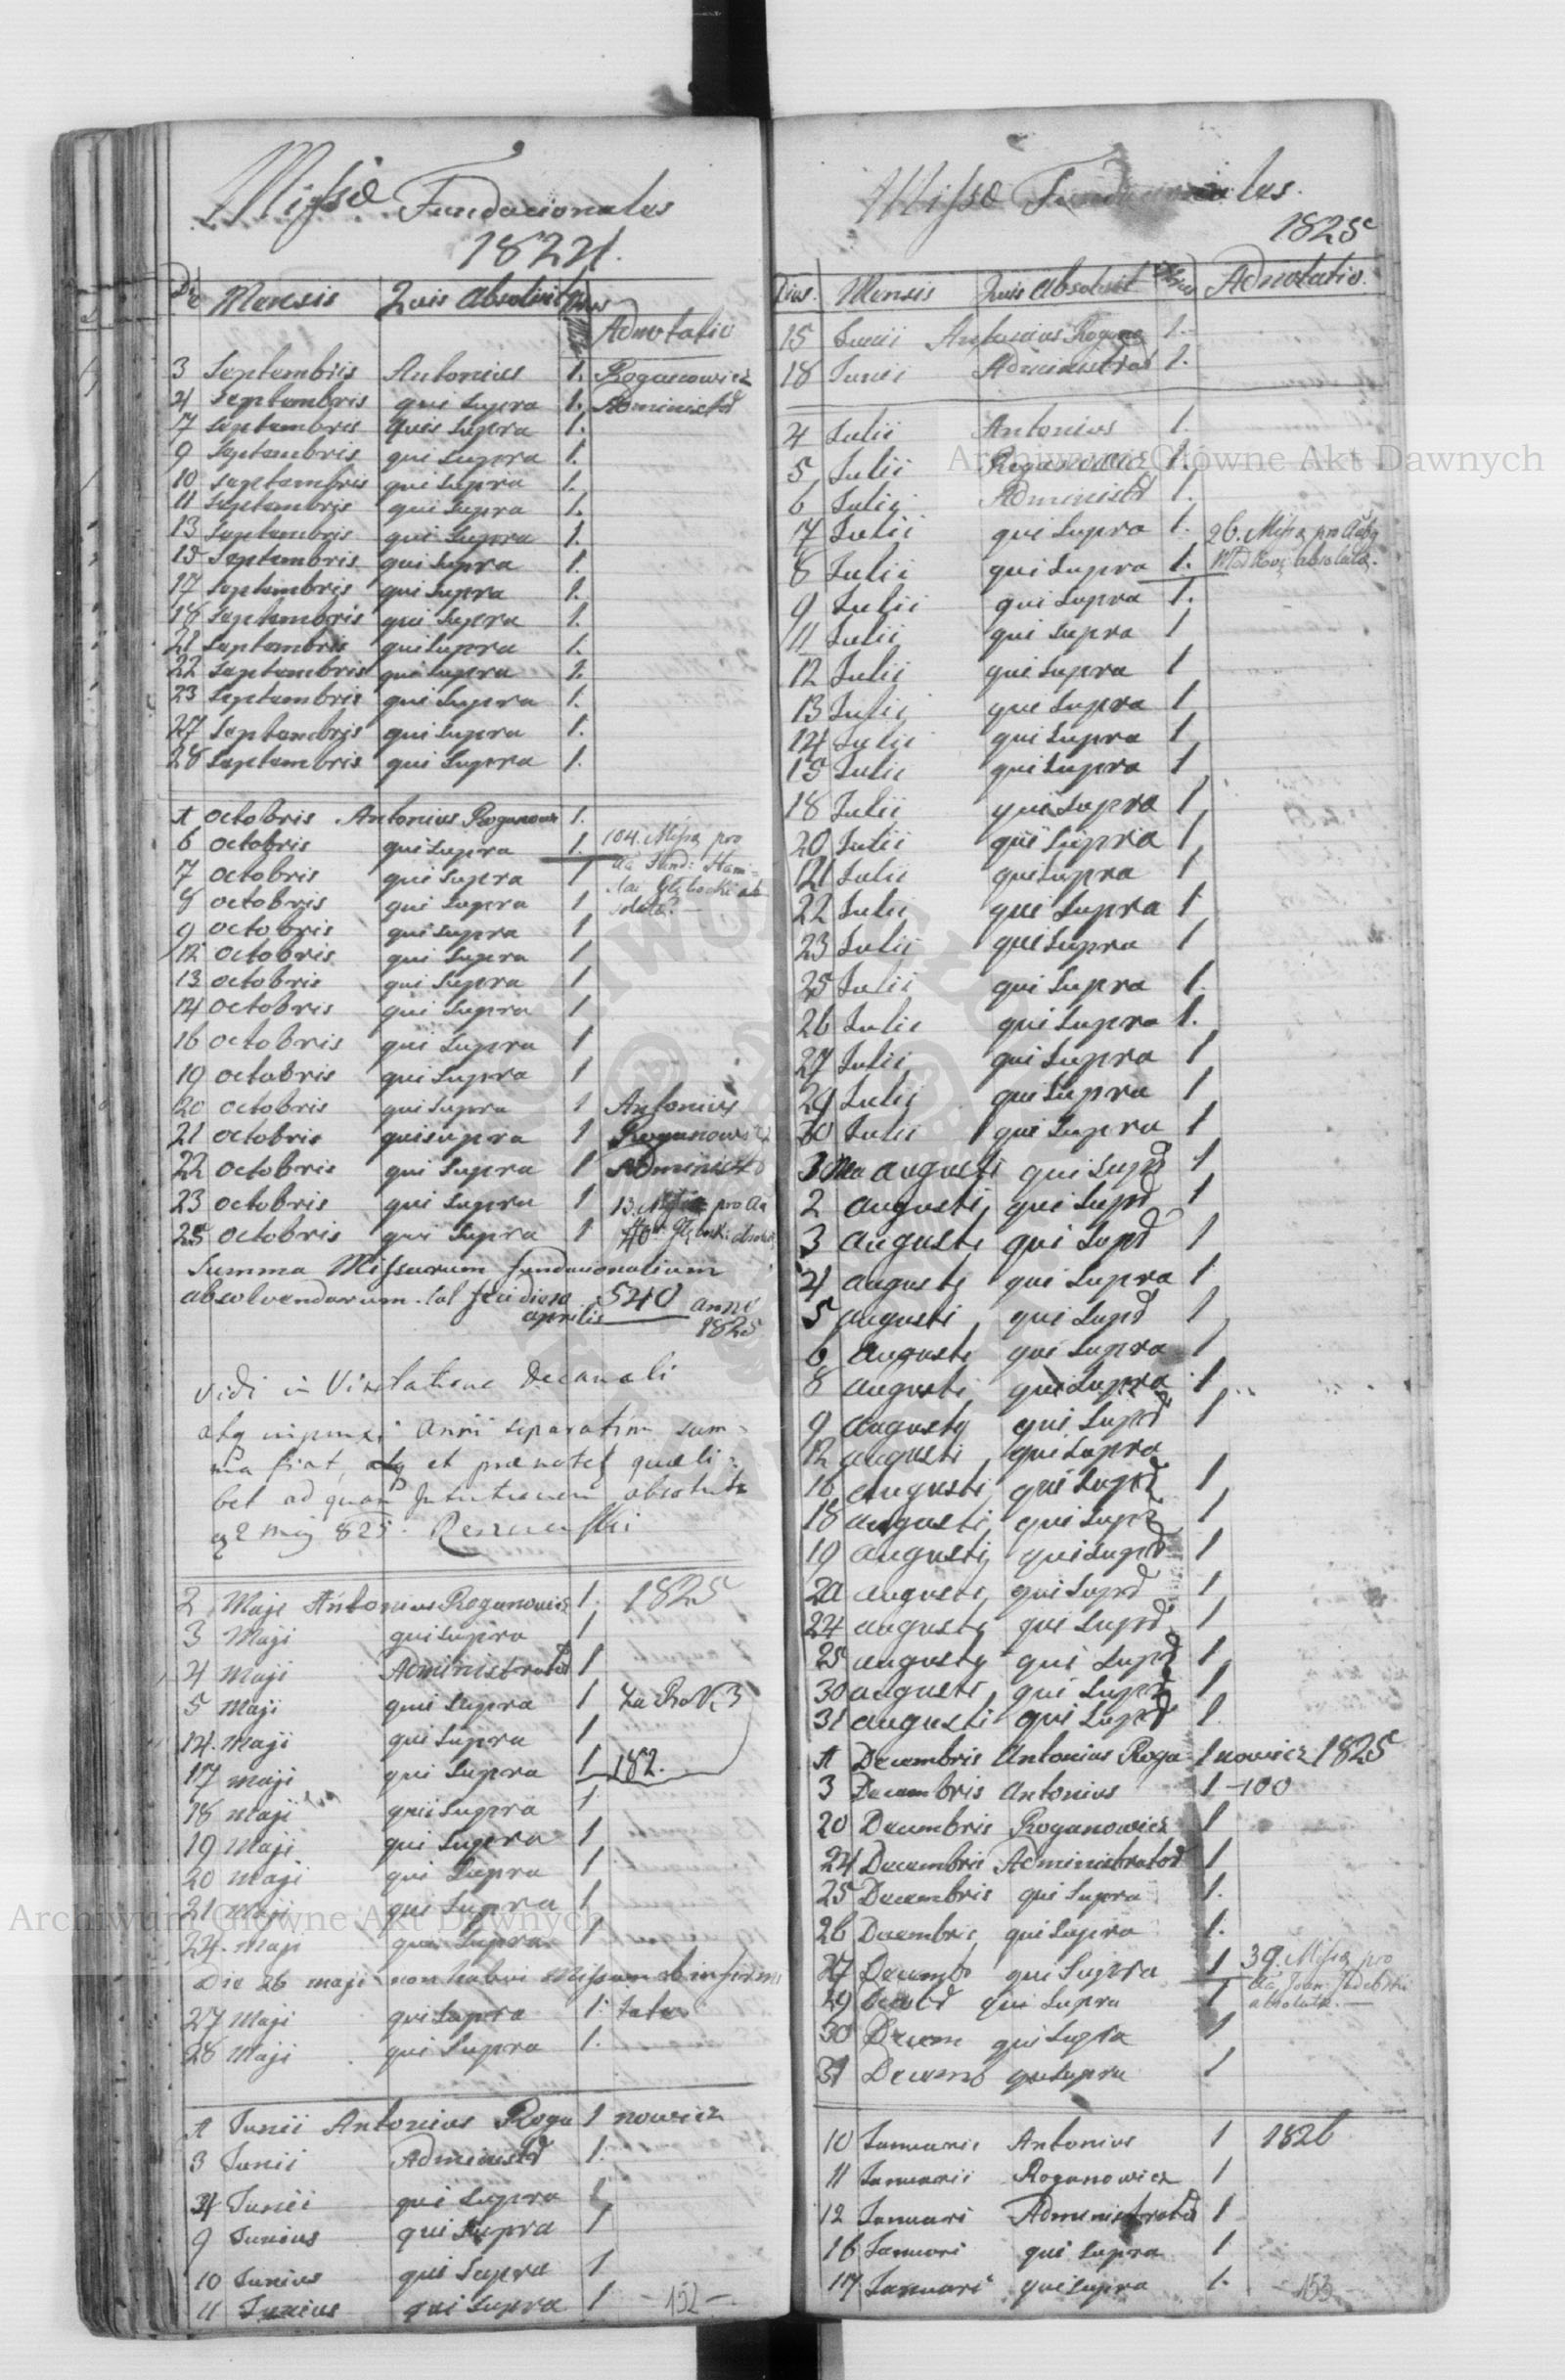 Missae Fundacionales
1824.
Die Mensis Quis Absolvit Adnotatio
3 Septembris Antonius 1. Roganowicz
4 Septembris qui Supra 1. Administrd
7 Septembris qui Supra 1.
9 Septembris qui Supra 1.
10 Septembris qui Supra 1.
11 Septembris qui Supra 1.
13 Septembris qui Supra 1.
15 Septembris qui Supra 1.
17 Septembris qui Supra 1.
18 Septembris qui Supra 1.
21 Septembris qui Supra 1.
22 Septembris qui Supra 1.
23 Septembris qui Supra 1.
27 Septembris qui Supra 1.
28 Septembris qui Supra 1.
1 octobris Antonius Roganow 1.
6 octobris qui Supra 1. 104. Missa pro
7 octobris qui Supra 1
8 octobris qui Supra 1
9 octobris qui Supra 1
12 octobris qui Supra 1
13 octobris qui Supra 1
14 octobris qui Supra 1
16 octobris qui Supra 1
19 octobris qui Supra 1
20 octobris qui Supra 1 Antonius
21 octobris qui Supra 1 Roganowicz
22 octobris qui Supra 1 Administ
23 octobris qui Supra 1 13. Missa pro
25 octobris qui Supra 1
Summa Missarum fundacionalium
absolvendarum 540 anno
aprilis 1825
Vidi in Visitatione Decanali
Anni separatim sum-
ma fiat, et quaeli-
bet ad absoluta
2 Maji 825.
2 Maji Antonius Roganowicz 1. 1825
3 Maji qui Supra 1
4 Maji Administratd 1
5 Maji qui Supra 1
14. Maji qui Supra 1
17 Maji qui Supra 1 182.
18 Maji qui Supra 1
19 Maji qui Supra 1
20 Maji qui Supra 1
21 Maji qui Supra 1
24. Maji qui Supra 1
Die 26 maji non habui Missam ob infirmi
27 Maji qui Supra 1. tate
28 Maji qui Supra 1.
1 Junii Antonius Roga 1 nowicz
3 Junii Administd 1.
4 Junii qui Supra 1
9 Junius qui Supra 1
10 Junius qui Supra 1
11 Junius qui Supra 1 - 152 -
Missae Fundacionales.
1825
Dies. Mensis Quis Absolvit Adnotatio.
15 Junii Antonius Rogano 1.
18 Junii Administrat 1.
4 Julii Antonius 1.
5 Julii Roganowicz 1.
6 Julii Administd 1.
7 Julii qui Supra 1. 26. Missa pro
8 Julii qui Supra 1. absoluta.
9 Julii qui Supra 1.
11 Julii qui Supra 1
12 Julii qui Supra 1
13 Julii qui Supra 1
14 Julii qui Supra 1
15 Julii qui Supra 1
18 Julii qui Supra 1
20 Julii qui Supra 1
21 Julii qui Supra 1
22 Julii qui Supra 1
23 Julii qui Supra 1
25 Julii qui Supra 1.
26 Julii qui Supra 1.
27 Julii qui Supra 1
29 Julii qui Supra 1
30 Julii qui Supra 1
augusti qui Supd 1
2 augusti qui Supd 1
3 augusti qui Supd 1
4 augusti qui Supra 1
5 augusti qui Supd 1
6 augusti qui Supra 1
8 augusti qui Supra 1
9 augusty qui Supd 1
12 augusti qui Supra
16 augusti qui Supd 1
18 augusti qui Supd 1
19 augusti qui Supd 1
20 augusti qui Supd 1
24 augusti qui Supd 1
25 augusty qui Supd 1
30 augusti qui Supd 1
31 augusti qui Supd 1
1 Decembris Antonius Roga 1 nowicz 1825
3 Decembris Antonius 1 -100
20 Decembris Roganowicz 1
24 Decembris Administratd 1
25 Decembris qui Supra 1.
26 Decembris qui Supra 1.
27 Decemb qui Supra 1 39. Missa pro
29 qui Supra 1 absoluta. -
30 Decem qui Supra 1
31 Decemb qui Supra 1
10 Januarii Antonius 1 1826
11 Januarii Roganowicz 1
12 Januari Administratd 1
16 Januari qui Supra 1
17 Januari qui Supra 1. - 153 -
Archiwum Główne Akt Dawnych
Archiwum Główne Akt Dawnych